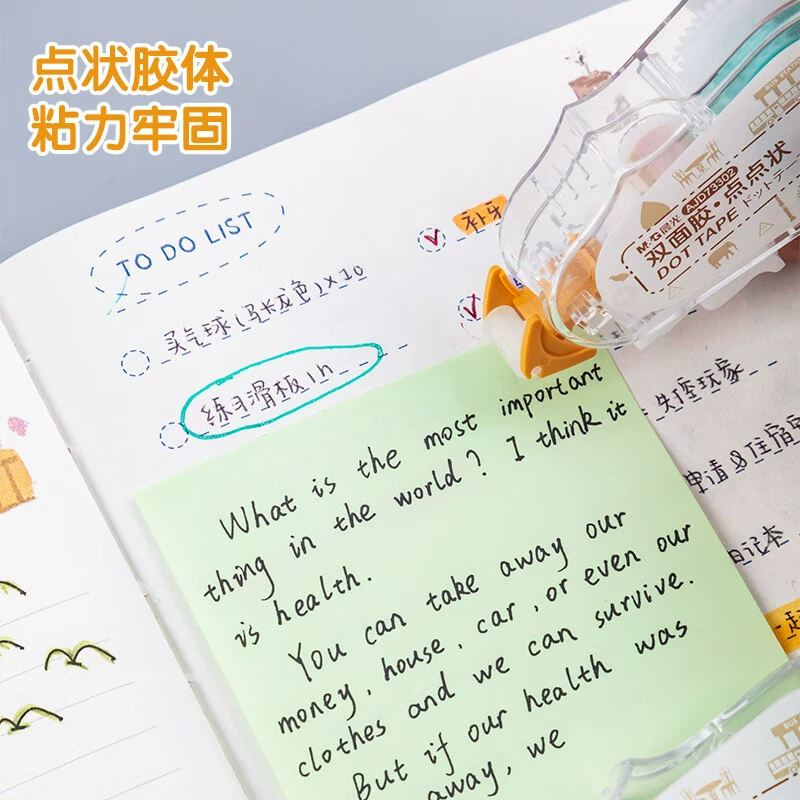 点状胶体
粘力牢固
TO DO LIST
买气球(马卡龙色)×10
练习滑板1h
补牙
M&G晨光 AJD73302
双面胶·点点状
DOT TAPE ドットテープ
BUS STATION
失踪玩家
申请&住宿
日记本
一起
What is the most important
thing in the world? I think it
is health.
You can take away our
money, house, car, or even our
clothes and we can survive.
But if our health was
away, we